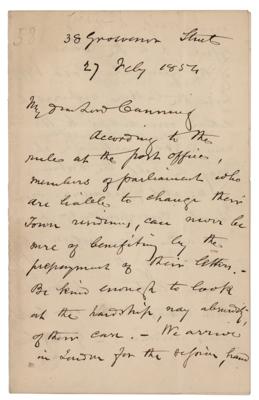 38 Grosvenor Street
27 Feby 1854
My dear Lord Canning
According to the
rules at the post office,
members of parliament who
are liable to change their
Town residence, can never be
sure of benefiting by the
prepayment of their letters. –
Be kind enough to look
at the hardship, nay absurdity
of their case. – We arrive
in London for the session, &